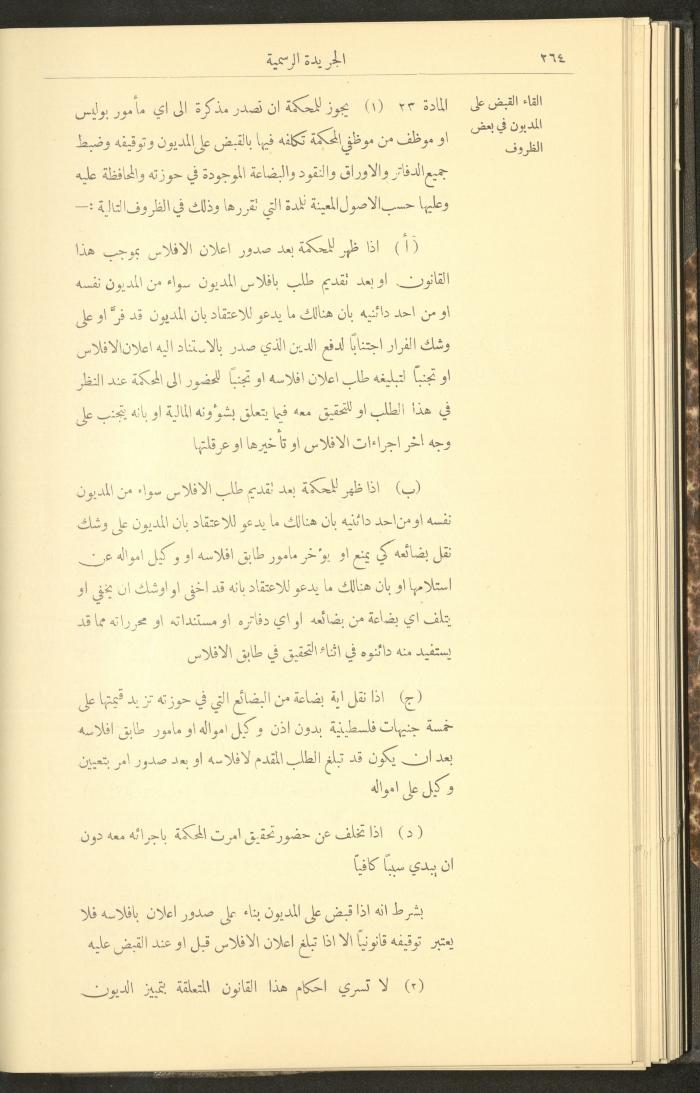 ٢٦٤
الجريدة الرسمية
القاء القبض على
المديون في بعض
الظروف
المادة ٢٣ (١) يجوز للمحكمة ان تصدر مذكرة الى اي مأمور بوليس
او موظف من موظفي المحكمة تكلفه فيها بالقبض على المديون وتوقيفه وضبط
جميع الدفاتر والاوراق والنقود والبضاعة الموجودة في حوزته والمحافظة عليه
وعليها حسب الاصول المعينة للمدة التي تقررها وذلك في الظروف التالية :—
(أ) اذا ظهر للمحكمة بعد صدور اعلان الافلاس بموجب هذا
القانون او بعد تقديم طلب بافلاس المديون سواء من المديون نفسه
او من احد دائنيه بان هنالك ما يدعو للاعتقاد بان المديون قد فرَّ او على
وشك الفرار اجتنابًا لدفع الدين الذي صدر بالاستناد اليه اعلان الافلاس
او تجنبًا لتبليغه طلب اعلان افلاسه او تجنبًا للحضور الى المحكمة عند النظر
في هذا الطلب او للتحقيق معه فيما يتعلق بشؤونه المالية او بانه يتجنب على
وجه اخر اجراءات الافلاس او تأخيرها او عرقلتها
(ب) اذا ظهر للمحكمة بعد تقديم طلب الافلاس سواء من المديون
نفسه او من احد دائنيه بان هنالك ما يدعو للاعتقاد بان المديون على وشك
نقل بضائعه كي يمنع او يؤخر مامور طابق افلاسه او وكيل امواله عن
استلامها او بان هنالك ما يدعو للاعتقاد بانه قد اخفى او اوشك ان يخفي او
يتلف اي بضاعة من بضائعه او اي دفاتره او مستنداته او محرراته مما قد
يستفيد منه دائنوه في اثناء التحقيق في طابق الافلاس
(ج) اذا نقل اية بضاعة من البضائع التي في حوزته تزيد قيمتها على
خمسة جنيهات فلسطينية بدون اذن وكيل امواله او مامور طابق افلاسه
بعد ان يكون قد تبلغ الطلب المقدم لافلاسه او بعد صدور امر بتعيين
وكيل على امواله
(د) اذا تخلف عن حضور تحقيق امرت المحكمة باجرائه معه دون
ان يبدي سببًا كافيًا
بشرط انه اذا قبض على المديون بناء على صدور اعلان بافلاسه فلا
يعتبر توقيفه قانونيًا الا اذا تبلغ اعلان الافلاس قبل او عند القبض عليه
(٢) لا تسري احكام هذا القانون المتعلقة بتمييز الديون